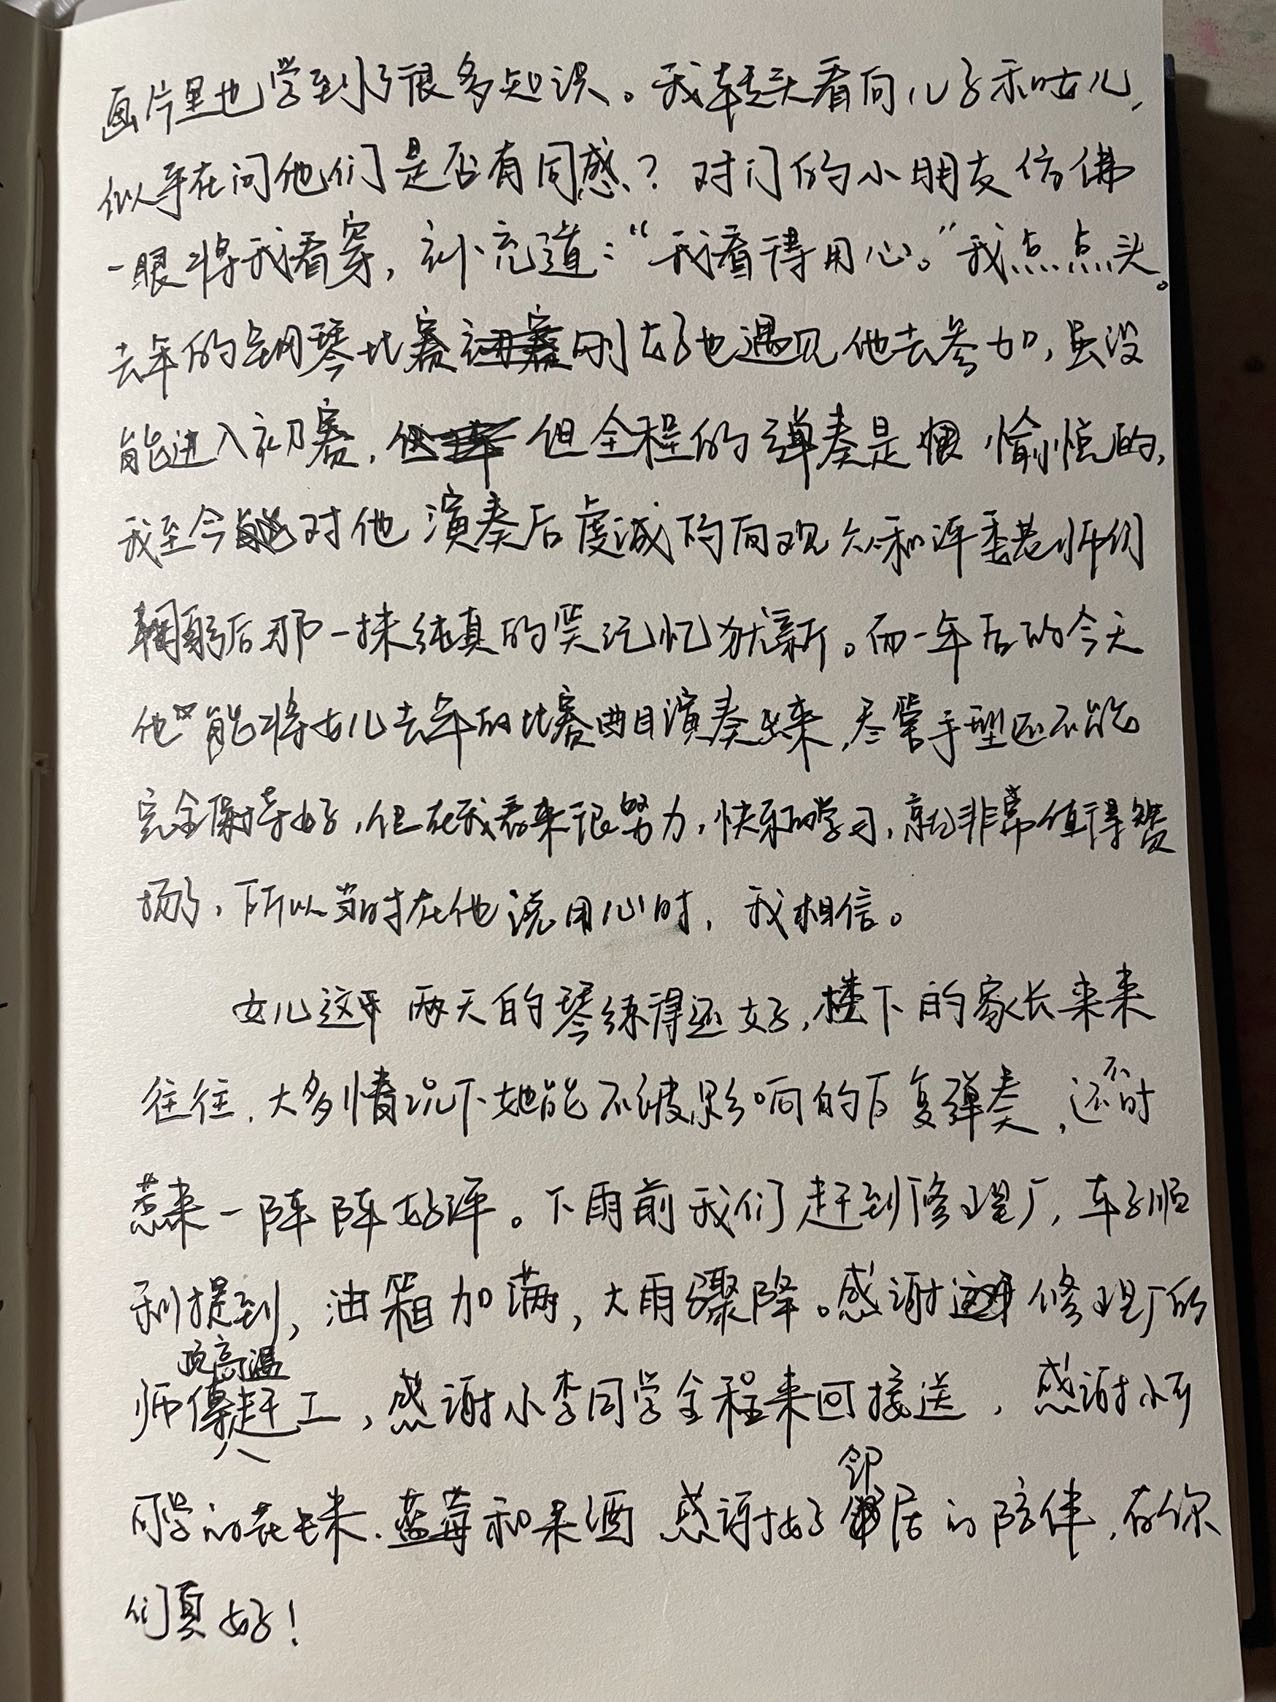 画片里也学到了很多知识。我转头看向儿子和女儿,
似乎在问他们是否有同感？对门的小朋友仿佛
一眼将我看穿, 补充道:“我看得用心。”我点点头。
去年的钢琴比赛刚好也遇见他去参加, 虽没
能进入初赛, 但全程的弹奏是很愉悦的,
我至今对他演奏后虔诚的向观众和评委老师们
鞠躬后那一抹纯真的笑记忆犹新。而一年后的今天
他能将女儿去年的比赛曲目演奏出来,尽管手型还不能
完全保持好, 但在我看来很努力, 快乐的学习, 就非常值得赞
扬了, 所以当时在他说用心时, 我相信。
女儿这两天的琴练得还好, 楼下的家长来来
往往, 大多情况下她能不被影响的反复弹奏, 还不时
惹来一阵阵好评。下雨前我们赶到修理厂, 车子顺
利提到, 油箱加满, 大雨骤降。感谢修理厂的
师傅顶高温赶工, 感谢小李同学全程来回接送, 感谢小
同学的玉米、蓝莓和果酒 感谢好邻居的陪伴, 有你
们真好!